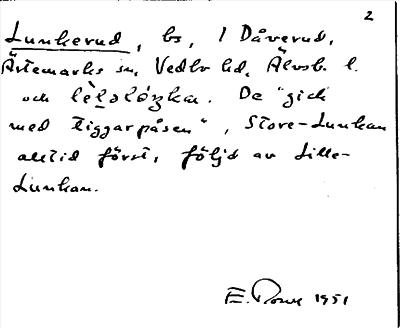 2
Lunkerud, bs, I Dåverud,
Ärtemarks sn, Vedbo hd, Älvsb. l.
och lèlslóŋkan. De "gick
med tiggarpåsen", Store-Lunkan
alltid först, följd av Lille-
Lunkan.
E. 1951